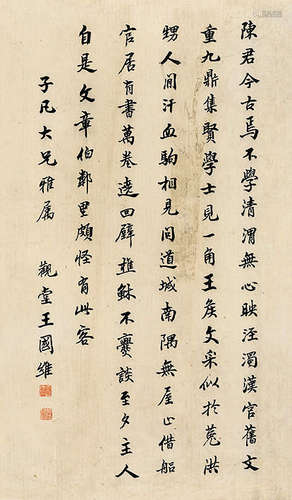 陳君今古焉不學清渭無心映涇濁漢官舊文
重九鼎集賢學士見一角王矦文采似於菟洪
甥人間汗血駒相見問道城南隅無屋止借船
官居有書萬卷遶四壁樵穌不爨談至夕主人
自是文章伯鄰里頗怪有此客
子凡大兄雅屬 觀堂王國維